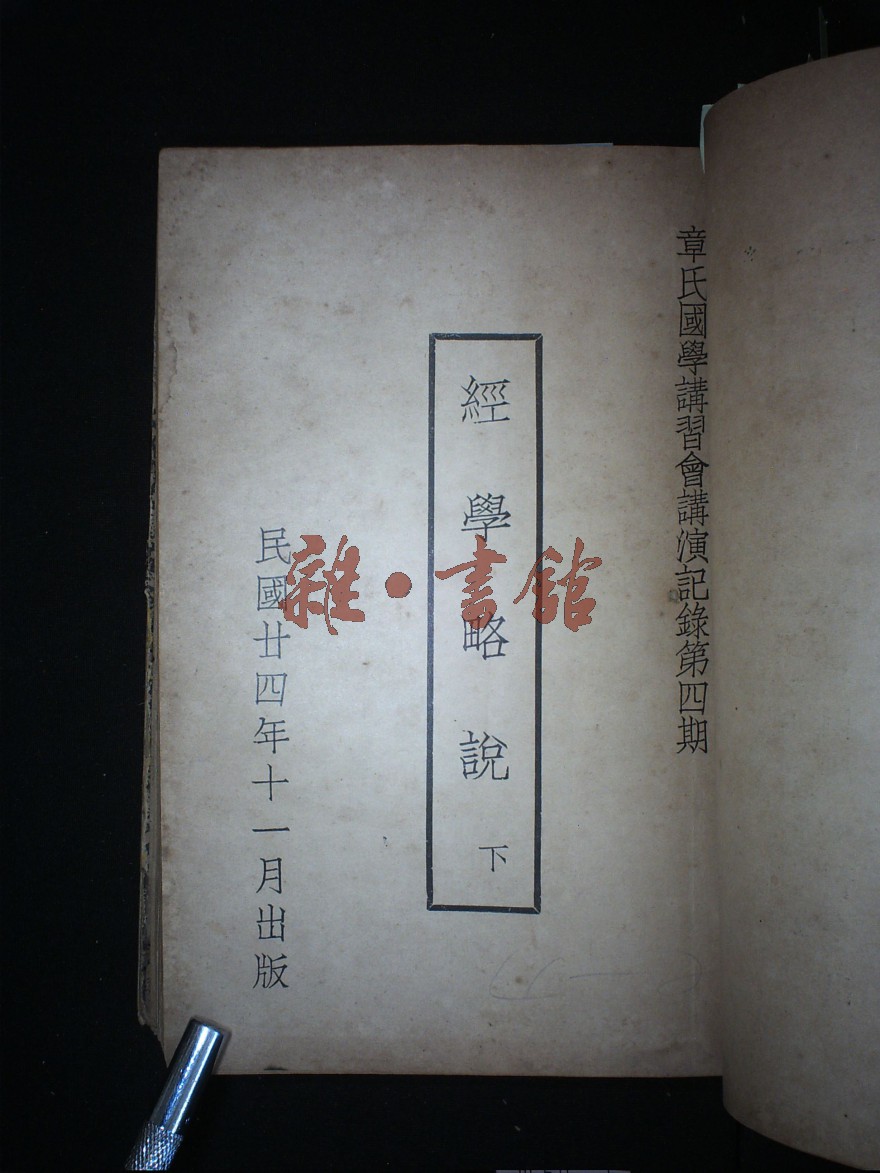 章氏國學講習會講演記錄第四期
經學略說 下
民國廿四年十一月出版
雜·書館